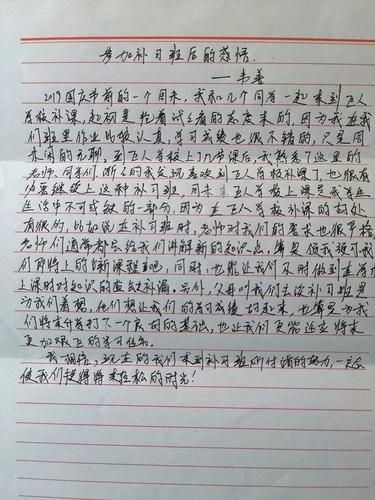 参加补习班后的感悟
——韦善
2019国庆节前的一个周末,我和几个同学一起来到飞人
学校补课,起初是抱着试试看的态度来的,因为我在我
们班里作业比较认真,学习成绩也很不错的,只是周
末闲的无聊,到飞人学校上了几节课后,我熟悉了这里的
老师、同学们,渐渐的我发现喜欢到飞人学校补课了,也很有
必要继续上这种补习班,周末来飞人学校上课是我学生
生活中不可或缺的一部分,因为在飞人学校补课的好处
有很多,比如说在补习班时,老师对我们的要求也很严格
老师们通常都会给我们讲解新的知识点,算是领我预习我
们即将上的新课程吧,同时,也能让我们不时做到在学校
上课时对知识的查缺补漏。另外,父母叫我们去读补习班是
为我们着想,他们想让我们的学习成绩好起来,也算是为我
们将来升学打下一个良好的基础,也让我们更能适应将来
更加艰巨的学习任务。
我相信,现在的我们来到补习班所付诸的努力,一定会
使我们赢得将来轻松的时光!